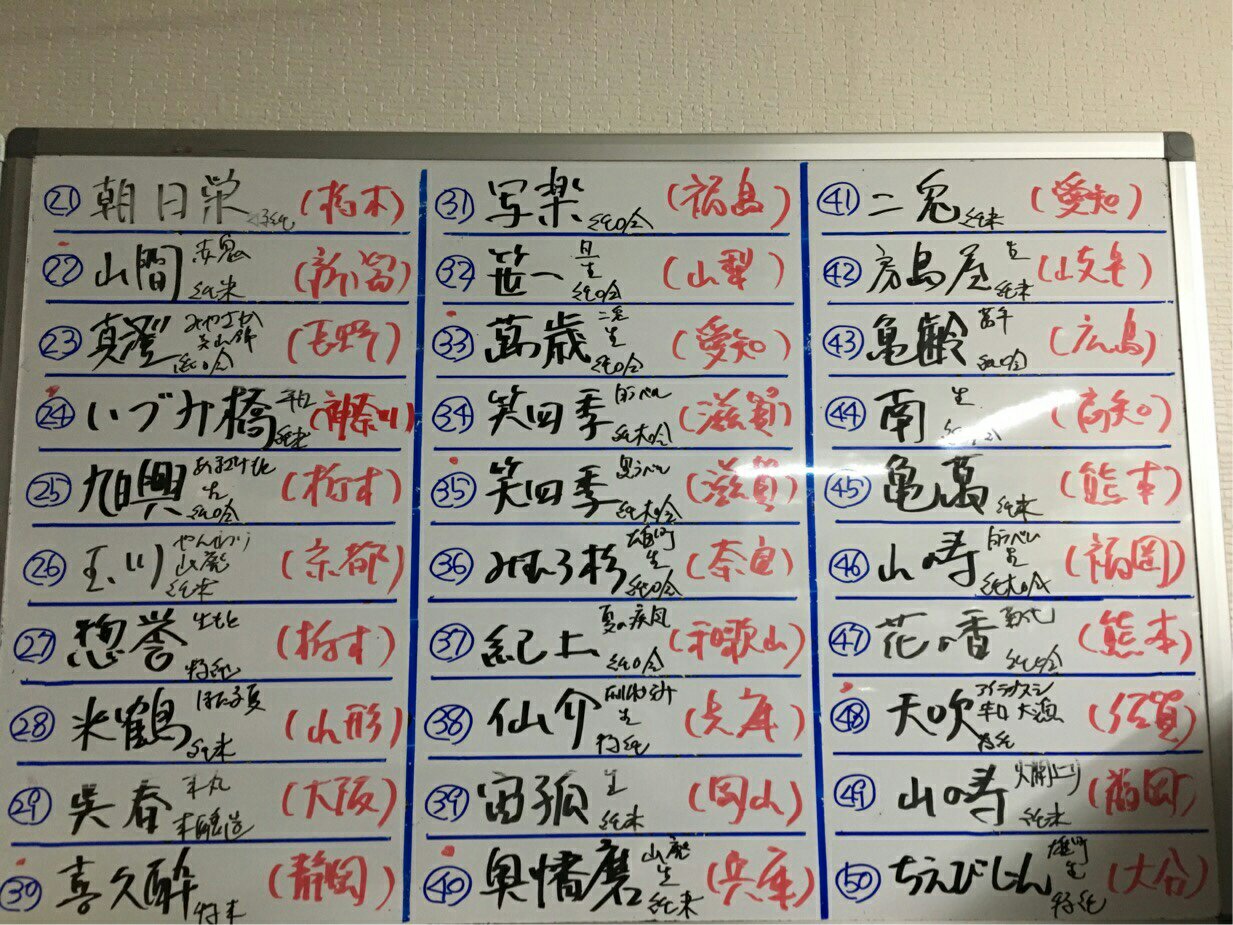 ㉑ 朝日栄 特純 (栃木)
㉒ 山間 赤鬼 純米 (新潟)
㉓ 真澄 みやさか 美山錦 純吟 (長野)
㉔ いづみ橋 純米 (神奈川)
㉕ 旭興 生 純吟 (栃木)
㉖ 玉川 山廃 純米 (京都)
㉗ 惣誉 生もと 特純 (栃木)
㉘ 米鶴 純米 (山形)
㉙ 呉春 本丸 本醸造 (大阪)
㉚ 喜久酔 特本 (静岡)
㉛ 写楽 純吟 (福島)
㉜ 笹一 生 純吟 (山梨)
㉝ 萬歳 生 純吟 (愛知)
㉞ 笑四季 白らべる 純大吟 (滋賀)
㉟ 笑四季 黒らべる 純大吟 (滋賀)
㊱ みむろ杉 雄町 生 純吟 (奈良)
㊲ 紀土 夏の疾風 純吟 (和歌山)
㊳ 仙介 生 特純 (兵庫)
㊴ 宙狐 生 純米 (岡山)
㊵ 奥播磨 山廃 生 純米 (兵庫)
㊶ 二兎 純米 (愛知)
㊷ 房島屋 生 純米 (岐阜)
㊸ 亀齢 萬年 純吟 (広島)
㊹ 南 生 純吟 (高知)
㊺ 亀萬 純米 (熊本)
㊻ 山の寿 純大吟 (福岡)
㊼ 花の香 純吟 (熊本)
㊽ 天吹 特純 (佐賀)
㊾ 山の寿 純米 (福岡)
㊿ ちえびじん 雄町 生 特純 (大分)